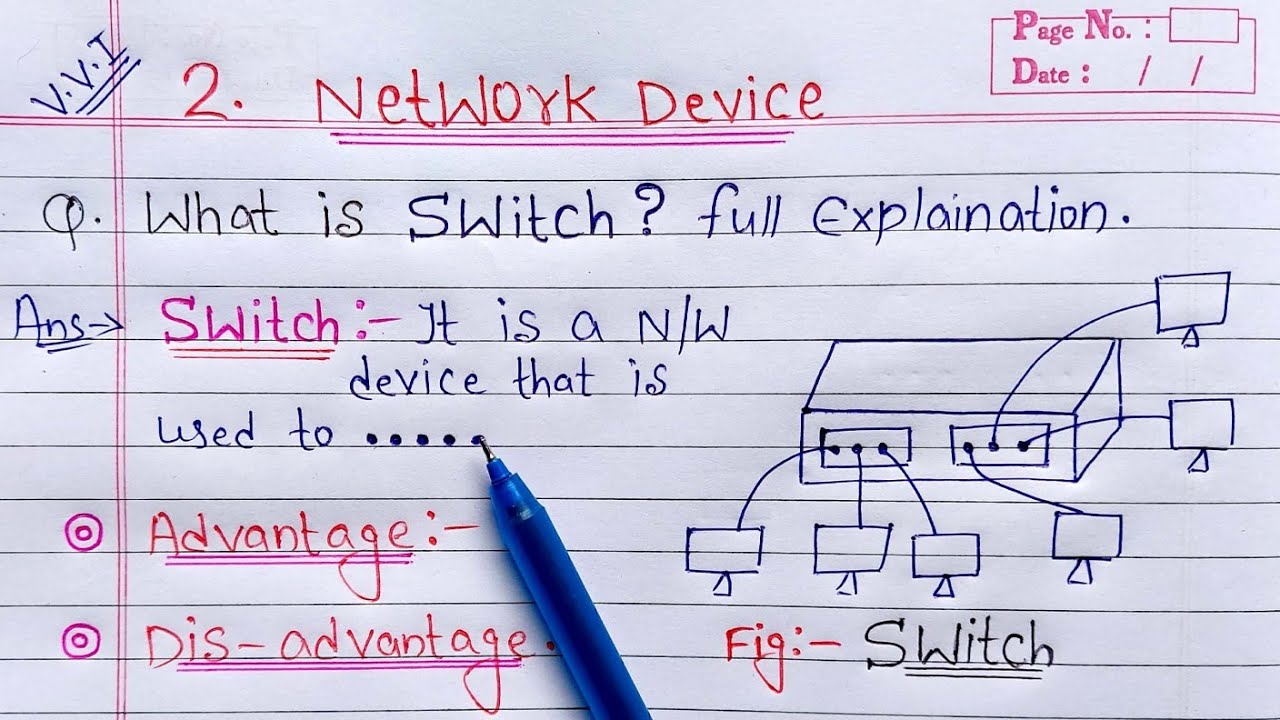 Page No. :
Date : / /
V.V.I
2. Network Device
Q. What is Switch? full Explaination.
Ans→ Switch:- It is a N/W
device that is
used to .....
Advantage:-
Dis-advantage.
Fig:- Switch